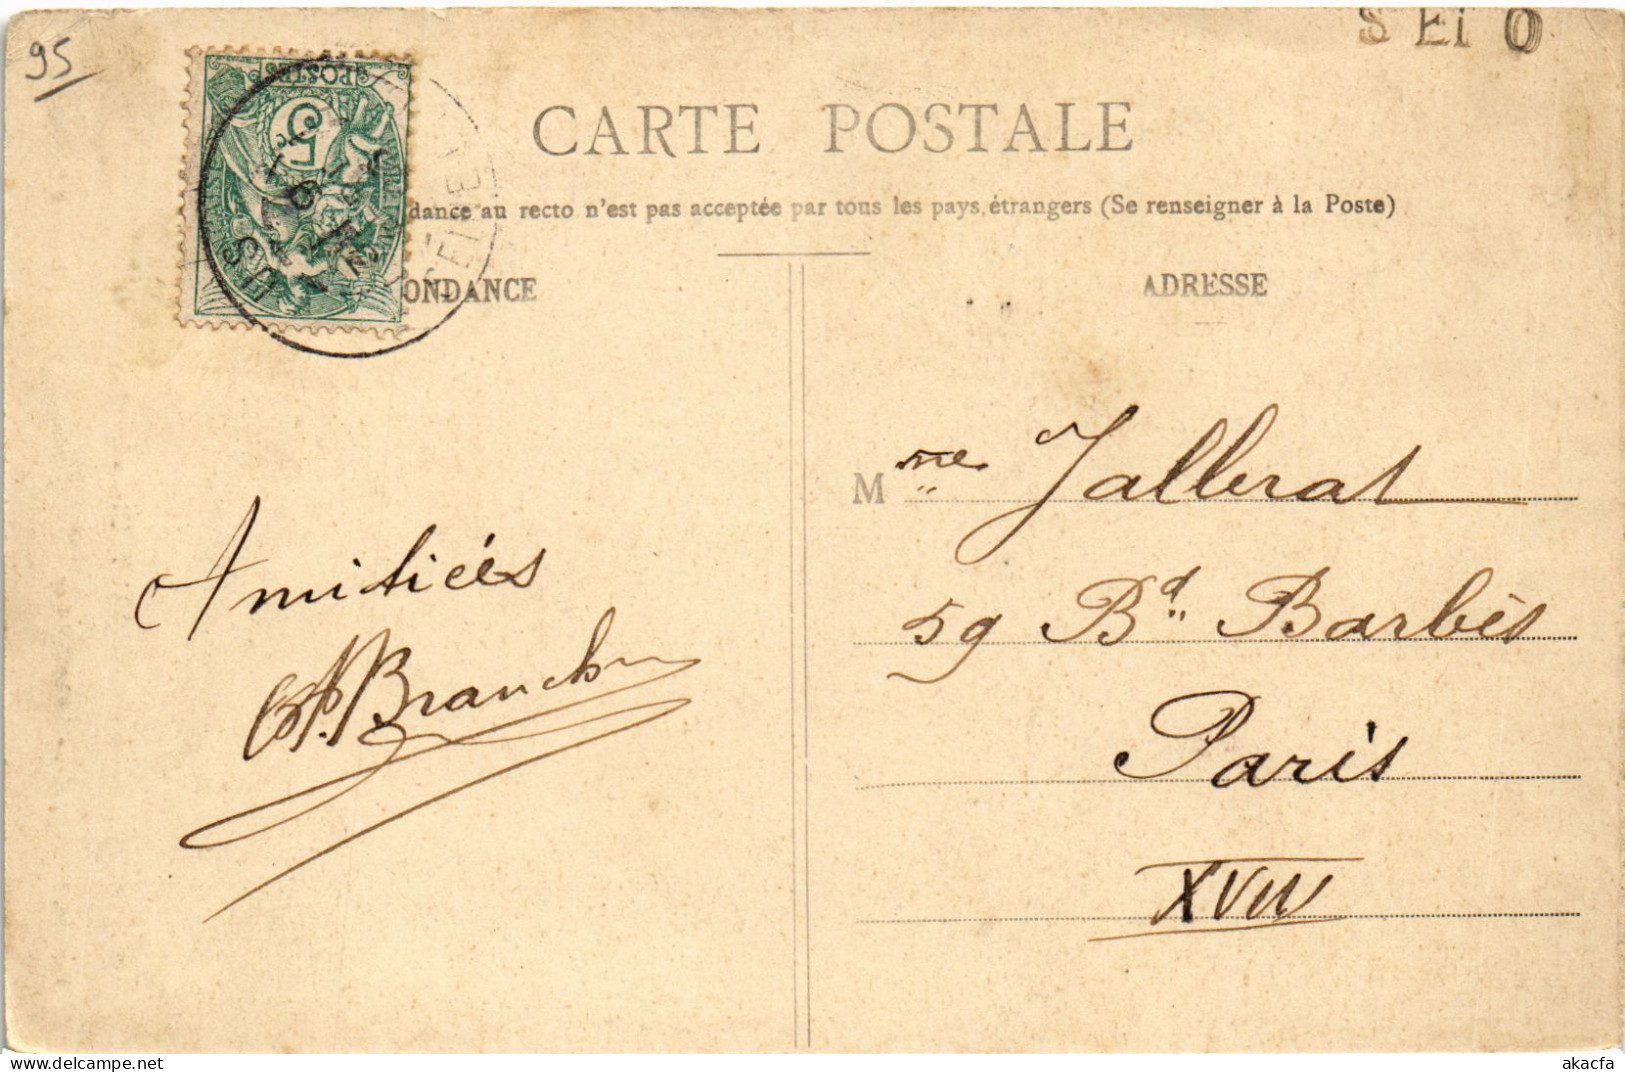 95
S Et O
POSTES
5
CARTE POSTALE
dance au recto n'est pas acceptée par tous les pays étrangers (Se renseigner à la Poste)
ONDANCE
ADRESSE
US
Mme Jallerat
59 Bd Barbès
Paris
XVIII
Amitiées
Branch
akacfa